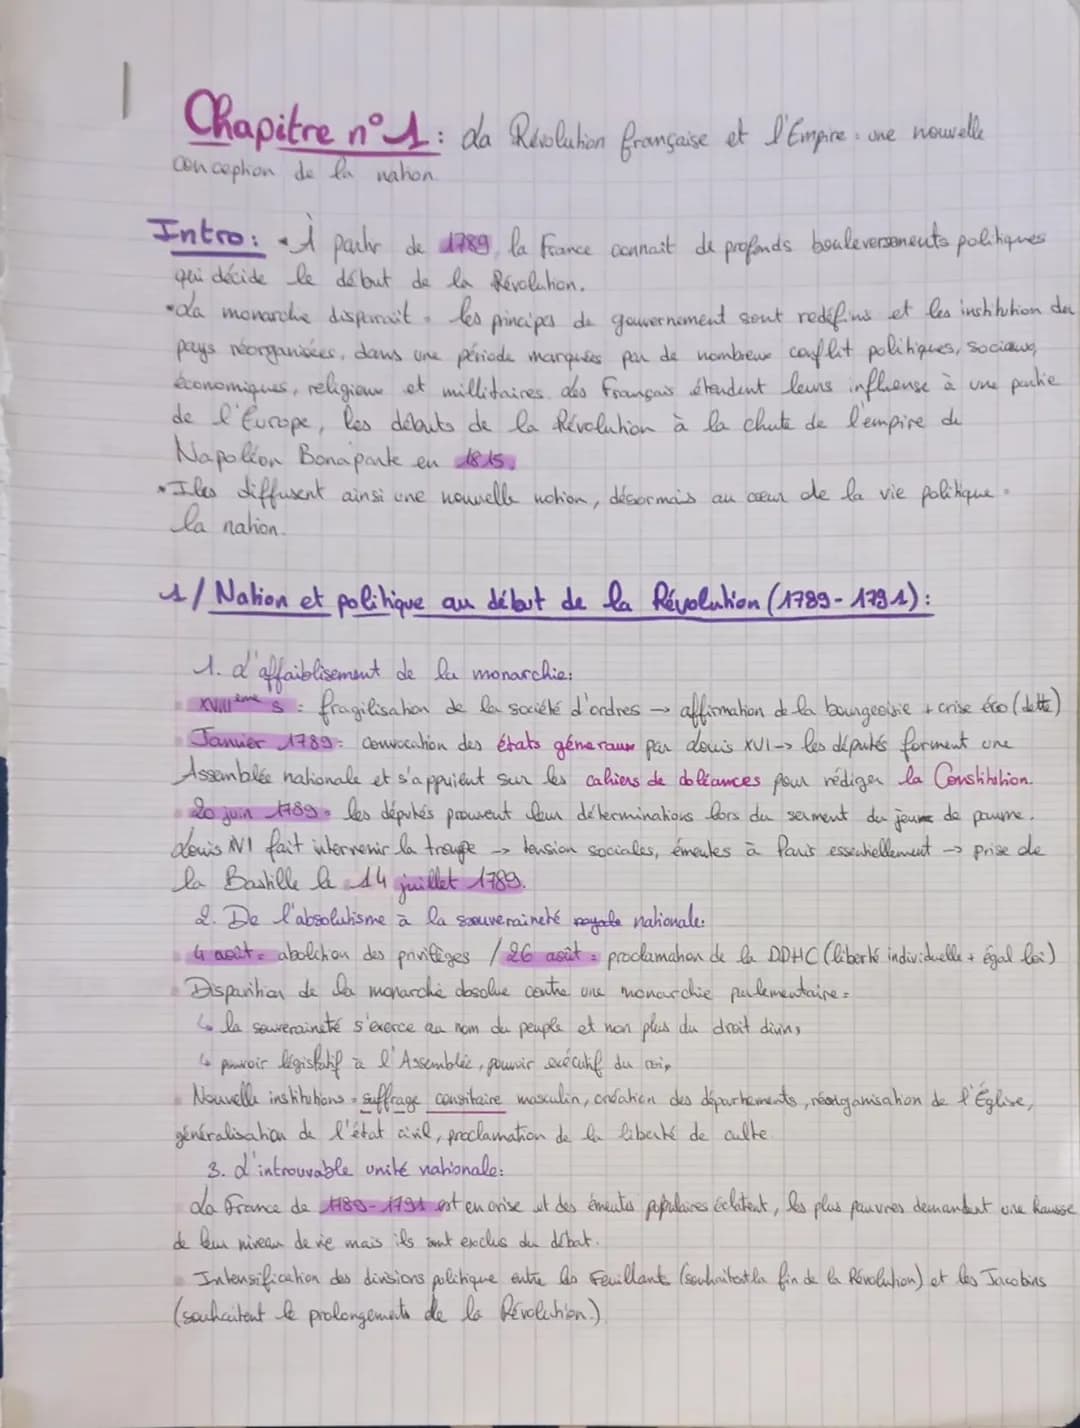 Chapitre n°1 : La Révolution française et l'Empire : une nouvelle
conception de la nation.
Intro : • À partir de 1789, la France connait de profonds bouleversements politiques
qui décide le début de la Révolution.
• La monarchie disparait : les principes de gouvernement sont redéfinis et les institution du
pays réorganisées, dans une période marquées par de nombreux conflit politiques, sociaux,
économiques, religieux et millitaires. Les Français étendent leurs influense à une partie
de l'Europe, les débuts de la Révolution à la chute de l'empire de
Napoléon Bonaparte en 1815.
• Iles diffusent ainsi une nouvelle notion, désormais au cœur de la vie politique :
la nation.
1/ Nation et politique au début de la Révolution (1789-1791) :
1. L'affaiblisement de la monarchie :
XVIIIème s : fragilisation de la société d'ordres → affirmation de la bourgeoisie + crise éco (dette)
Janvier 1789 : convocation des états généraux par Louis XVI → les députés forment une
Assemblée nationale et s'appuient sur les cahiers de doléances pour rédiger la Constitution.
20 juin 1789 : les députés prouvent leur déterminations lors du serment du jeu de paume.
Louis XVI fait intervenir la troupe → tension sociales, émeutes à Paris essentiellement → prise de
la Bastille le 14 juillet 1789.
2. De l'absolutisme à la souveraineté royale nationale :
4 août : abolition des privilèges / 26 août : proclamation de la DDHC (liberté individuelle + égal loi)
Disparition de la monarchie absolue contre une monarchie parlementaire :
↳ la souveraineté s'exerce au nom du peuple et non plus du droit divin,
↳ pouvoir législatif à l'Assemblée, pouvoir exécutif du roi,
Nouvelle institutions : suffrage censitaire masculin, création des départements, réorganisation de l'Église,
généralisation de l'état civil, proclamation de la liberté de culte.
3. L'introuvable unité nationale :
La France de 1789-1791 est en crise et des émeutes populaires éclatent, les plus pauvres demandent une hausse
de leur niveau de vie mais ils sont exclus du débat.
Intensification des divisions politique entre les Feuillants (souhaitent la fin de la Révolution) et les Jacobins
(souhaitent le prolongements de la Révolution.)